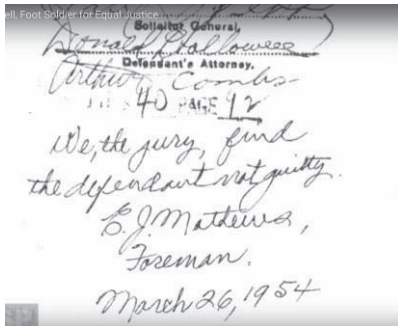 ell, Foot Soldier for Equal Justice
Solicitor General,
Donald Hollowell
Defendant's Attorney.
Arthur Combs
40 PAGE 12
We, the jury, find
the defendant not guilty.
E. J. Mathews,
Foreman.
March 26, 1954